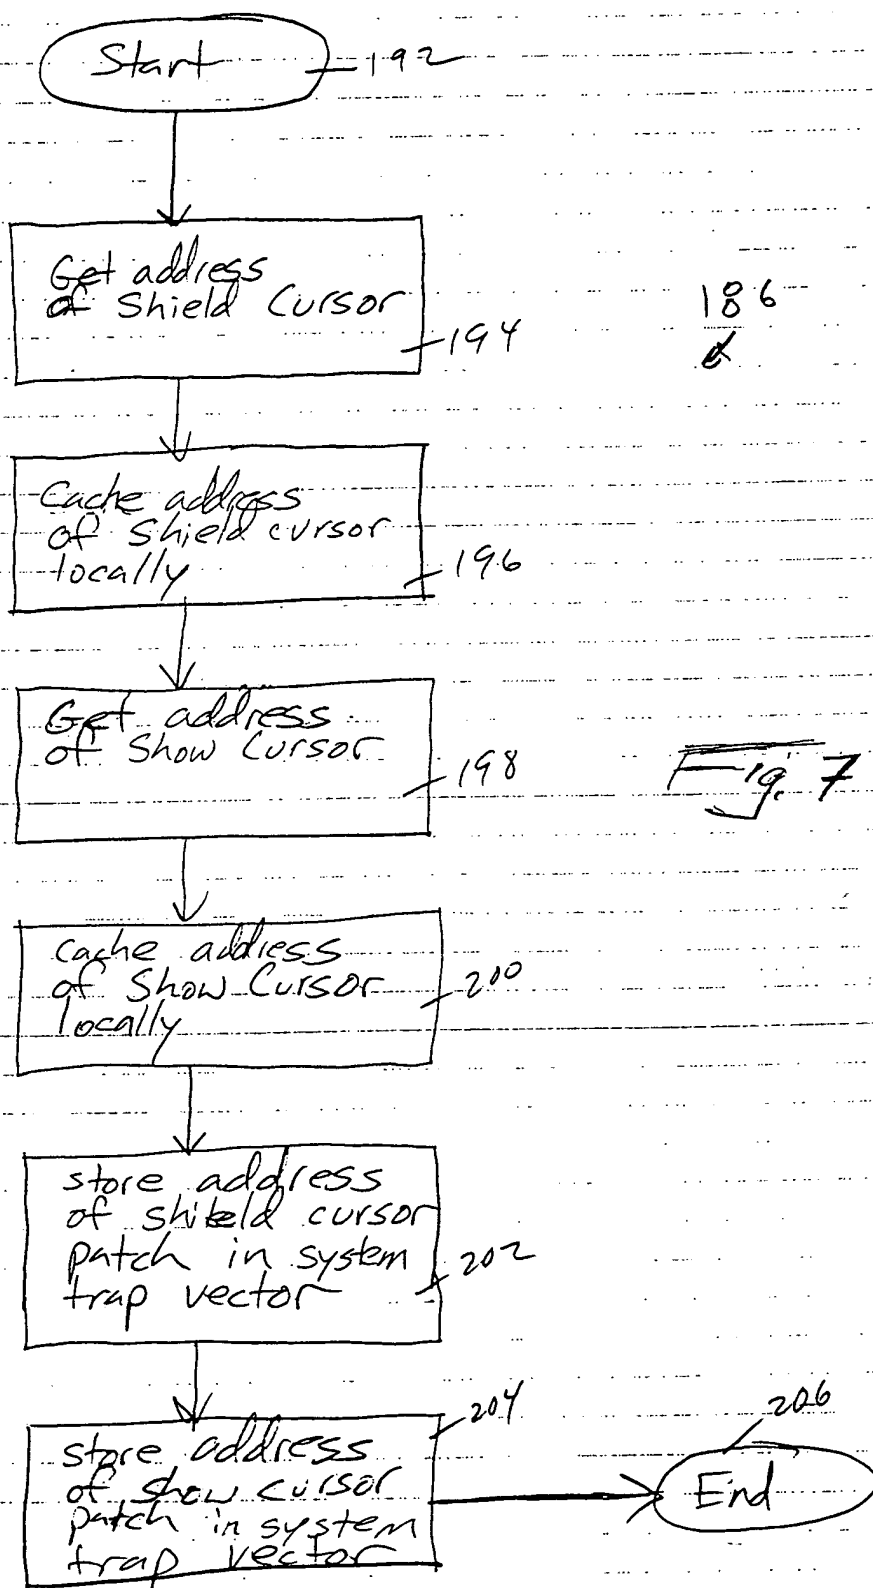 Start
192
Get address
of Shield Cursor
194
186
Cache address
of Shield cursor
locally
196
Get address
of Show Cursor
198
Fig. 7
cache address
of Show Cursor
locally
200
store address
of shield cursor
patch in system
trap vector
202
204
store address
of show cursor
patch in system
trap vector
206
End